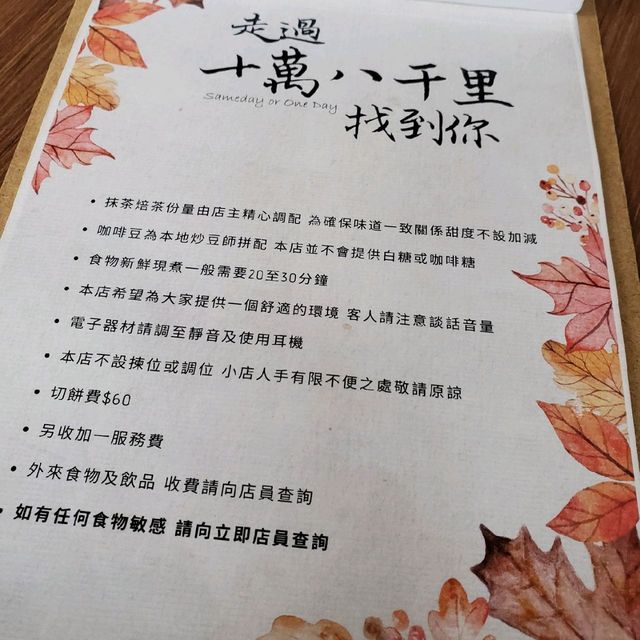 走過
十萬八千里
Sameday or One Day
找到你
• 抹茶焙茶份量由店主精心調配 為確保味道一致關係甜度不設加減
• 咖啡豆為本地炒豆師拼配 本店並不會提供白糖或咖啡糖
• 食物新鮮現煮一般需要20至30分鐘
• 本店希望為大家提供一個舒適的環境 客人請注意談話音量
• 電子器材請調至靜音及使用耳機
• 本店不設揀位或調位 小店人手有限不便之處敬請原諒
• 切餅費$60
• 另收加一服務費
• 外來食物及飲品 收費請向店員查詢
• 如有任何食物敏感 請向立即店員查詢